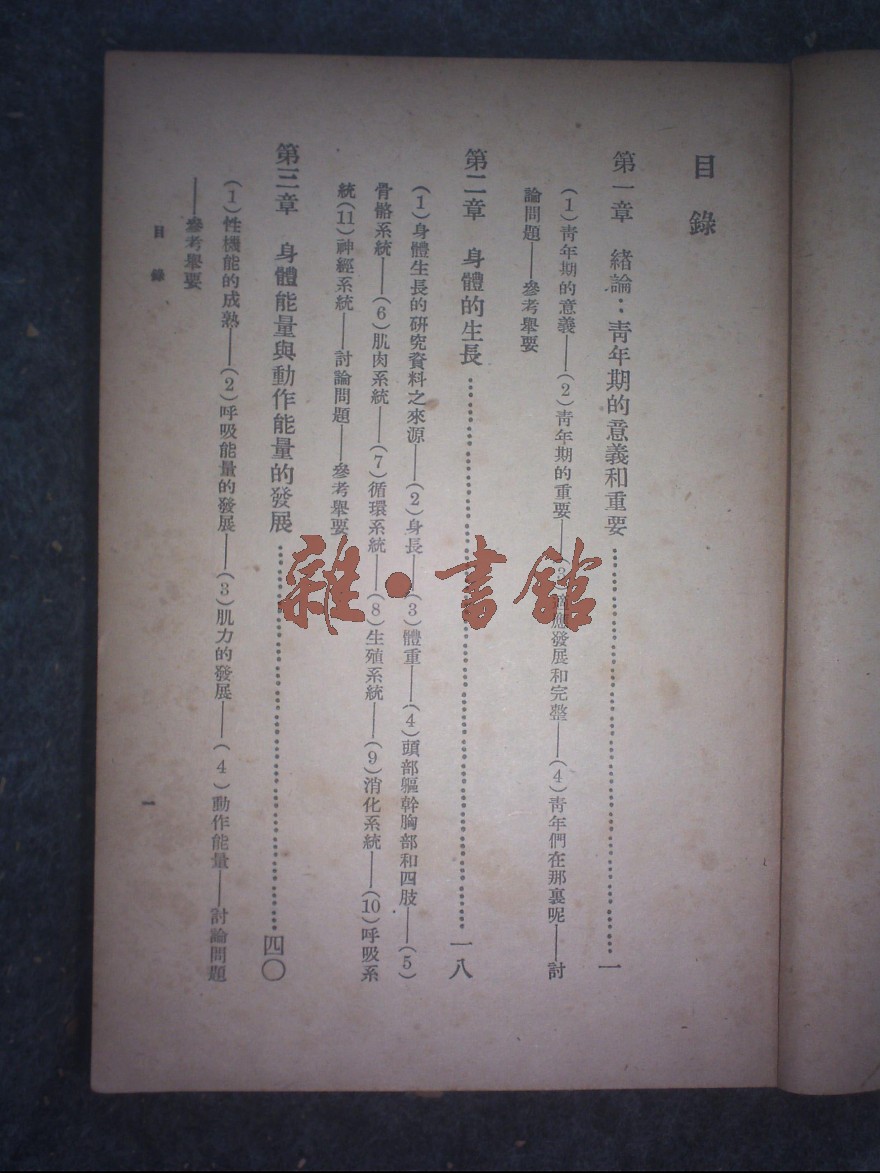 目錄
第一章 緒論：青年期的意義和重要……一
（1）青年期的意義——（2）青年期的重要——（3）適應發展和完整——（4）青年們在那裏呢——討
論問題——參考舉要
第二章 身體的生長……一八
（1）身體生長的研究資料之來源——（2）身長——（3）體重——（4）頭部軀幹胸部和四肢——（5）
骨骼系統——（6）肌肉系統——（7）循環系統——（8）生殖系統——（9）消化系統——（10）呼吸系
統（11）神經系統——討論問題——參考舉要
第三章 身體能量與動作能量的發展……四〇
（1）性機能的成熟——（2）呼吸能量的發展——（3）肌力的發展——（4）動作能量——討論問題
——參考舉要
目錄
一
雜·書館